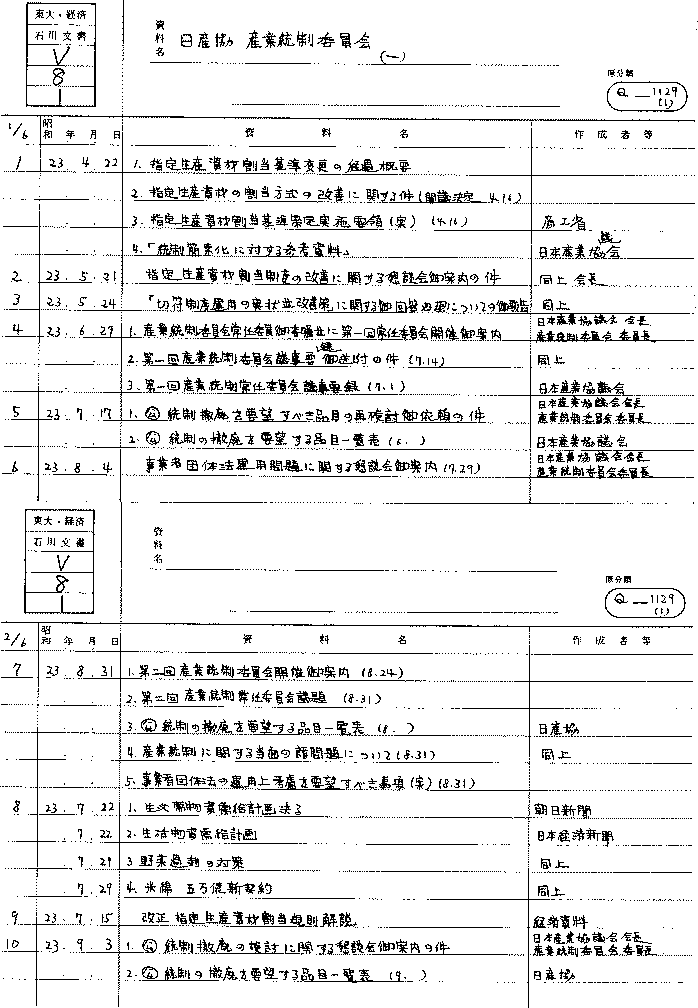 東大・経済
石川文書
V
8
1
資料名
日産協 産業統制委員会 (一)
原分類
Q—1129
(1)
1/6 昭和 年 月 日 資料名 作成者等
1 23 4 22 1. 指定生産資材割当基準変更の経過概要
2. 指定生産資材の割当方式の改善に関する件(閣議決定 4.16)
3. 指定生産資材割当基準策定実施要領(案) (4.16) 商工省
4.「統制簡素化に対する参考資料」 日本産業協議会
2 23.5.21 指定生産資材割当制度の改善に関する懇談会御案内の件 同上 会長
3 23.5.24 「切符制度運用の実状並改善策」に関する御回答処理についての御報告 同上
4 23.6.29 1. 産業統制委員会常任委員御委嘱並に第一回常任委員会開催御案内 日本産業協議会 会長
産業統制委員会 委員長
2. 第一回産業統制委員会議事要録御送付の件(7.14) 同上
3. 第一回産業統制常任委員会議事要録(7.1) 日本産業協議会
5 23.7.17 1. 公 統制撤廃を要望すべき品目の再検討御依頼の件 日本産業協議会会長
産業統制委員会委員長
2. 公 統制の撤廃を要望する品目一覧表(6. ) 日本産業協議会
6 23.8.4 事業者団体法運用問題に関する懇談会御案内(7.29) 日本産業協議会会長
産業統制委員会委員長
東大・経済
石川文書
V
8
1
資料名
原分類
Q—1129
(1)
2/6 昭和 年 月 日 資料名 作成者等
7 23.8.31 1. 第二回産業統制委員会開催御案内 (8.24)
2. 第二回産業統制常任委員会議題 (8.31)
3. 公 統制の撤廃を要望する品目一覧表 (8. ) 日産協
4. 産業統制に関する当面の諸問題について(8.31) 同上
5. 事業者団体法の運用上考慮を要望すべき事項(案)(8.31)
8 23.7.22 1. 生活物資需給計画決る 朝日新聞
7.22 2. 生活物資需給計画 日本経済新聞
7.29 3. 野菜過剰の対策 同上
7.29 4. 米棉 五万俵新契約 同上
9 23.7.15 改正指定生産資材割当規則解説 経済資料
10 23.9.3 1. 公 統制撤廃の検討に関する懇談会御案内の件 日本産業協議会会長
産業統制委員会委員長
2. 公 統制の撤廃を要望する品目一覧表 (9. ) 日産協